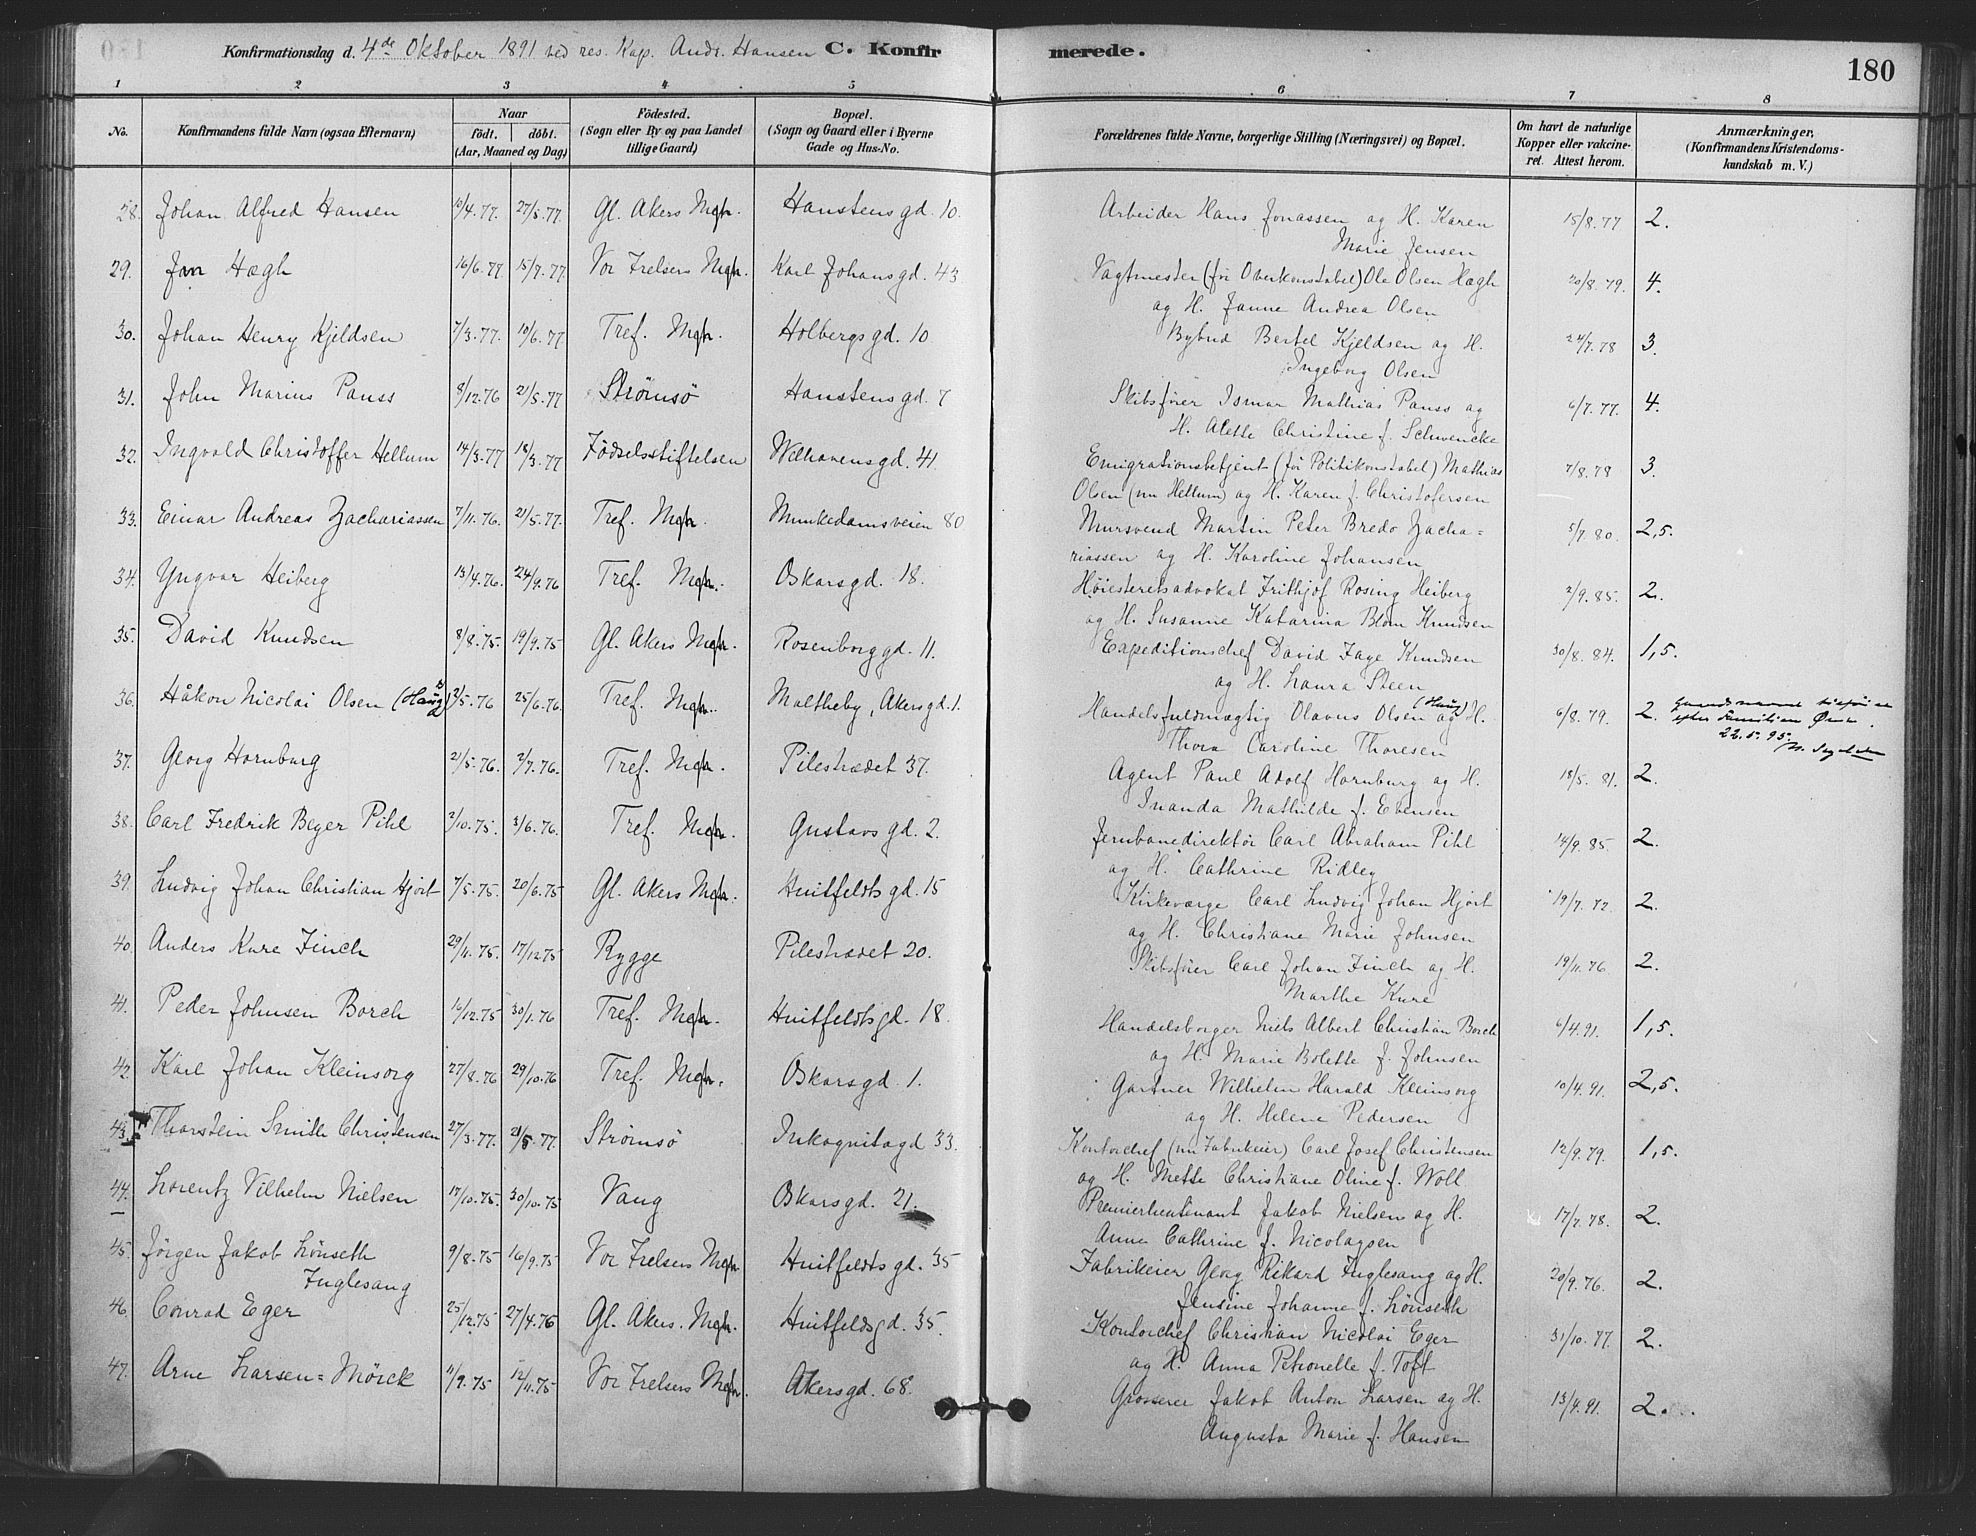 Konfirmationsdag d. 4de Oktober 1891 ved res. Kap. Andr. Hansen C. Konfir merede.
180
1 2 3 4 5 6 7 8
No. Konfirmandens fulde Navn (ogsaa Efternavn) Naar født. døbt. (Aar, Maaned og Dag) Fødested. (Sogn eller By og paa Landet tillige Gaard) Bopæl. (Sogn og Gaard eller i Byerne Gade og Hus-No. Forældrenes fulde Navne, borgerlige Stilling (Næringsvei) og Bopæl. Om havt de naturlige Kopper eller vakcineret. Attest herom. Anmærkninger, (Konfirmandens Kristendomskundskab m. V.)
28. Johan Alfred Hansen 10/4.77. 27/5.77. Gl. Akers Mgh. Hanstensgd. 10. Arbeider Hans Jonassen og H. Karen 15/8.77 2.
Marie Jensen
29. Jan Hægh 16/6.77 15/7.77. Vor Frelsers Mgh. Karl Johansgd. 43 Vagtmester (før Overkonstabel) Ole Olsen Hægh 20/8.79. 4.
og H. Janne Andrea Olsen
30. Johan Henry Kjeldsen 7/3.77. 10/6.77 Tref. Mgh. Holbergsgd. 10 Bybud Bertel Kjeldsen og H. 24/7.78 3.
Ingeborg Olsen
31. John Marius Pauss 8/12.76 21/5.77 Strømsö Hanstensgd. 7 Skibsfører Ismar Mathias Pauss og 6/7.77. 4.
H. Alette Christine f. Schwencke
32. Ingvald Christoffer Hellum 14/3.77 18/3.77 Födselsstiftelsen Welhavensgd. 41. Emigrationsbetjent (før Politikonstabel) Mathias 7/8.78 3.
Olsen (nu Hellum) og H. Karen f. Christofersen
33. Einar Andreas Zachariassen 7/11.76. 21/5.77. Tref. Mgh. Munkedamsveien 80 Mursvend Martin Peter Bredo Zacha= 5/7.80. 2,5.
riassen og H. Karoline Johansen
34. Yngvar Heiberg 13/4.76. 24/9.76 Tref. Mgh. Oskarsgd. 18. Høiesteretsadvokat Frithjof Rosing Heiberg 2/9.85. 2.
og H. Susanne Katarina Blom Knudsen
35. David Knudsen 8/8.75. 19/9.75 Gl. Akers Mgh. Rosenborggd. 11. Expeditionschef David Faye Knudsen 30/8.84. 1,5.
og H. Laura Steen
36. Håkon Nicolai Olsen (Haug) 2/5.76 25/6.76. Tref. Mgh. Maltheby, Akersgd. 1. Handelsfuldmægtig Olavus Olsen (Haug) og H. 6/8.79. 2. Gaardsnavnet tilføiet
efter Familien
22.5.95.
Thora Caroline Thoresen
37. Georg Hornburg 21/5.76. 2/7.76. Tref. Mgh. Pilestrædet 37. Agent Paul Adolf Hornburg og H. 18/5.81. 2.
Inanda Mathilde f. Evensen
38. Carl Fredrik Beyer Pihl 2/10.75. 3/6.76. Tref. Mgh. Gustavs gd. 2. Jernbanedirektör Carl Abraham Pihl 14/9.85. 2.
og H. Cathrine Ridley
39. Ludvig Johan Christian Hjort 7/5.75. 20/6.75 Gl. Akers Mgh. Huitfeldts gd. 15 Kirkeværge Carl Ludvig Johan Hjort 19/7.72. 2.
og H. Christiane Marie Johnsen
40. Anders Kure Finch 29/11.75. 17/12.75 Rygge Pilestrædet 20. Skibsfører Carl Johan Finch og H. 19/11.76. 2.
Marthe Kure
41. Peder Johnsen Borch 16/12.75 30/1.76 Tref. Mgh. Huitfeldtsgd. 18. Handelsborger Niels Albert Christian Borch 6/4.91. 1,5.
og H. Marie Bolette f. Johnsen
42. Karl Johan Kleinsorg 27/8.76 29/10.76 Tref. Mgh. Oskarsgd. 1. Gartner Wilhelm Harald Kleinsorg 10/4.91. 2,5.
og H. Helene Pedersen
43. Thorstein Smith Christensen 27/3.77. 21/5.77. Strømsö Inkognitogd 33. Kontorchef (nu Fabrikeier) Carl Josef Christensen 12/9.79. 1,5.
og H. Mette Christiane Oline f. Woll
44. Lorentz Vilhelm Nielsen 17/10.75. 30/10.75 Vang Oskarsgd. 21. Premierlieutenant Jakob Nielsen og H. 17/7.78. 2.
Anne Cathrine f. Nicolaysen
45. Jörgen Jakob Lönseth 9/8.75 16/9.75 Vor Frelsers Mgh Huitfeldts gd. 35 Fabrikeier Georg Rikard Fuglesang og H. 20/9.76. 2.
Fuglesang
Jensine Johanne f. Lönseth
46. Conrad Eger 25/12.75 27/4.76 Gl. Akers. Mgh. Huitfeldsgd. 35. Kontorchef Christian Nicolai Eger 31/10.77. 2.
og H. Anna Petronelle f. Toft
47. Arne Larsen=Mörck 11/9.75 12/11.75 Vor Frelsers Mgh. Akersgd. 68. Grosserer Jakob Anton Larsen og H. 13/4.91. 2.
Augusta Marie f. Hansen